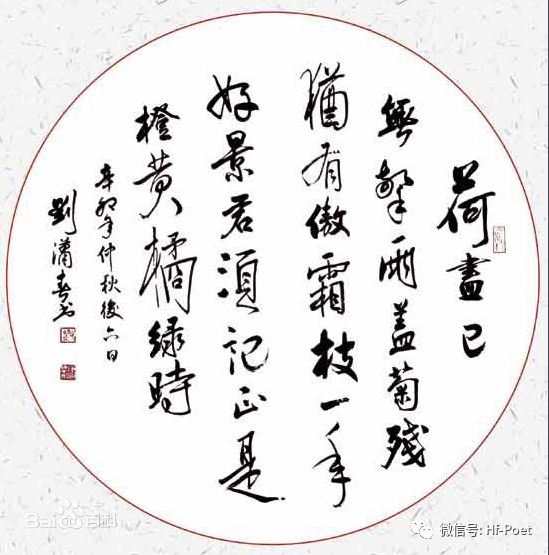 荷盡已
無擎雨盖菊殘
猶有傲霜枝一年
好景君須記正是
橙黄橘緑時
辛卯年仲秋後六日
劉瀟
Bai百科
微信号: Hf-Poet